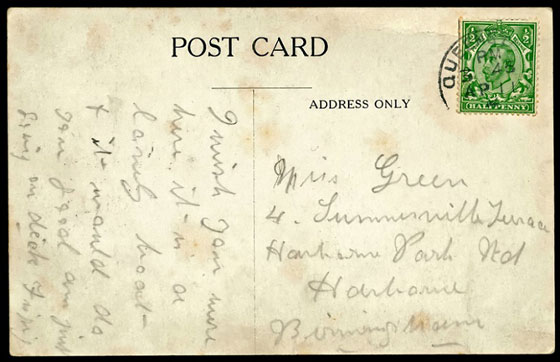 POST CARD
ADDRESS ONLY
½ ½
HALFPENNY
QUEE
I wish you were
here it is a
lovely boat-
& it would do
you good am just
going on deck
Miss Green
4. Summerville Terrace
Harborne Park Rd
Harborne
Birmingham